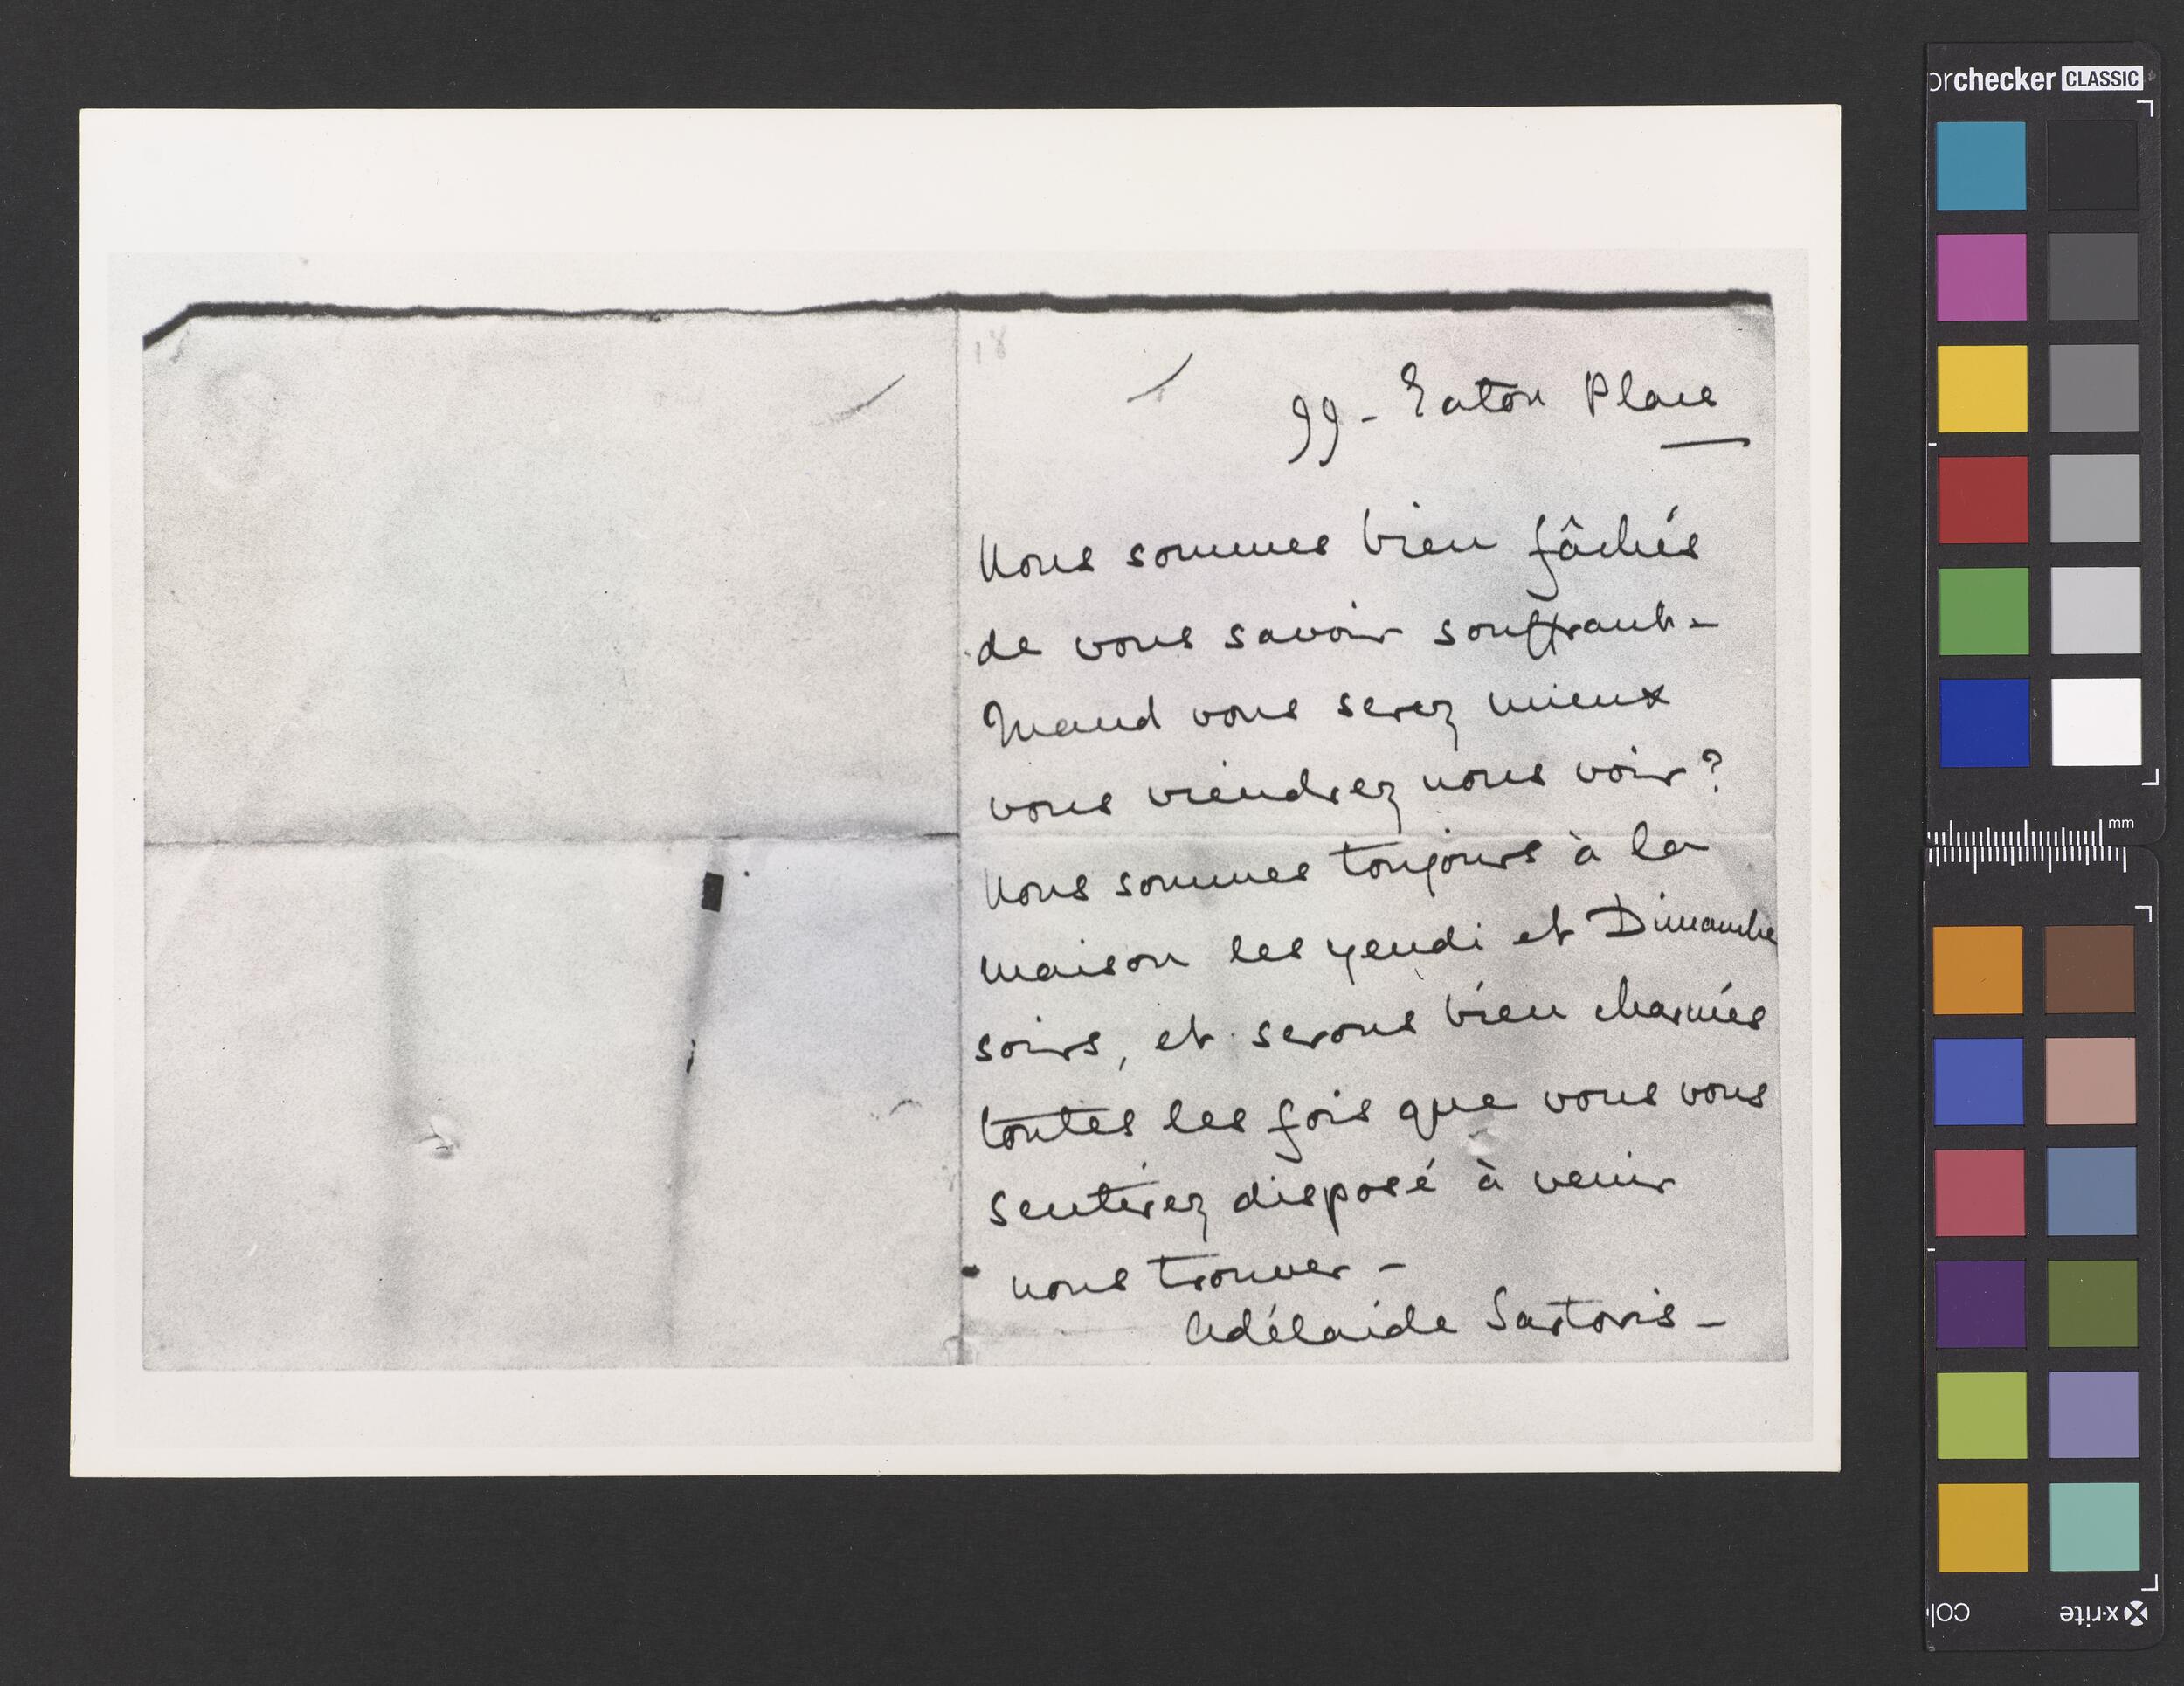 orchecker CLASSIC
18
99 - Eaton Place
Nous sommes bien fâchés
de vous savoir souffrant -
Quand vous serez mieux
vous viendrez nous voir?
Nous sommes toujours à la
maison les jeudi et Dimanche
soirs, et serons bien charmés
toutes les fois que vous vous
sentirez disposé à venir
nous trouver -
Adélaide Sartoris -
mm
x-rite
col